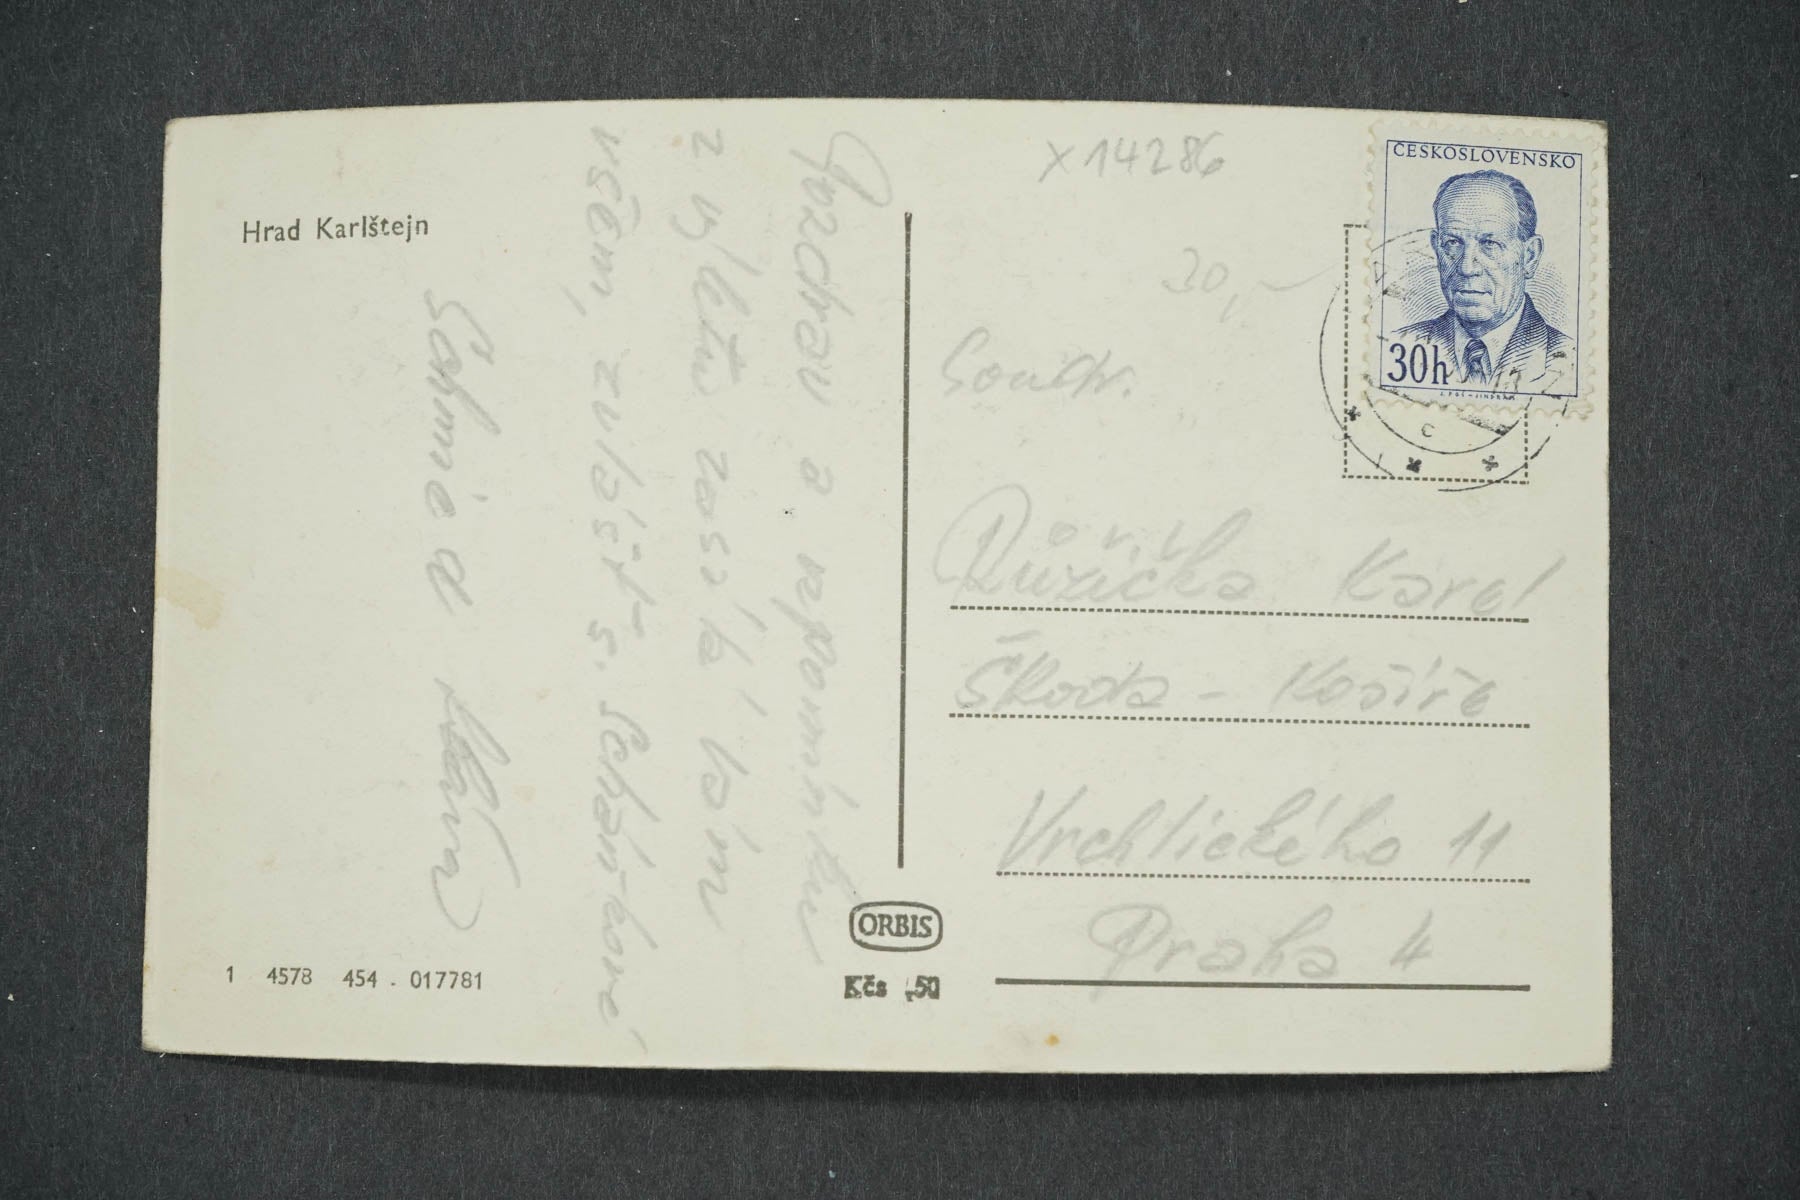 Hrad Karlštejn
Pozdrav a vzpomínku
z výletu zasílá vám
všem, zvlášť s.
1 4578 454 . 017781
ORBIS
Kčs ,50
x 14286
30,-
Soudr.
Růžička Karel
Škoda - Košíře
Vrchlického 11
Praha 4
ČESKOSLOVENSKO
30h